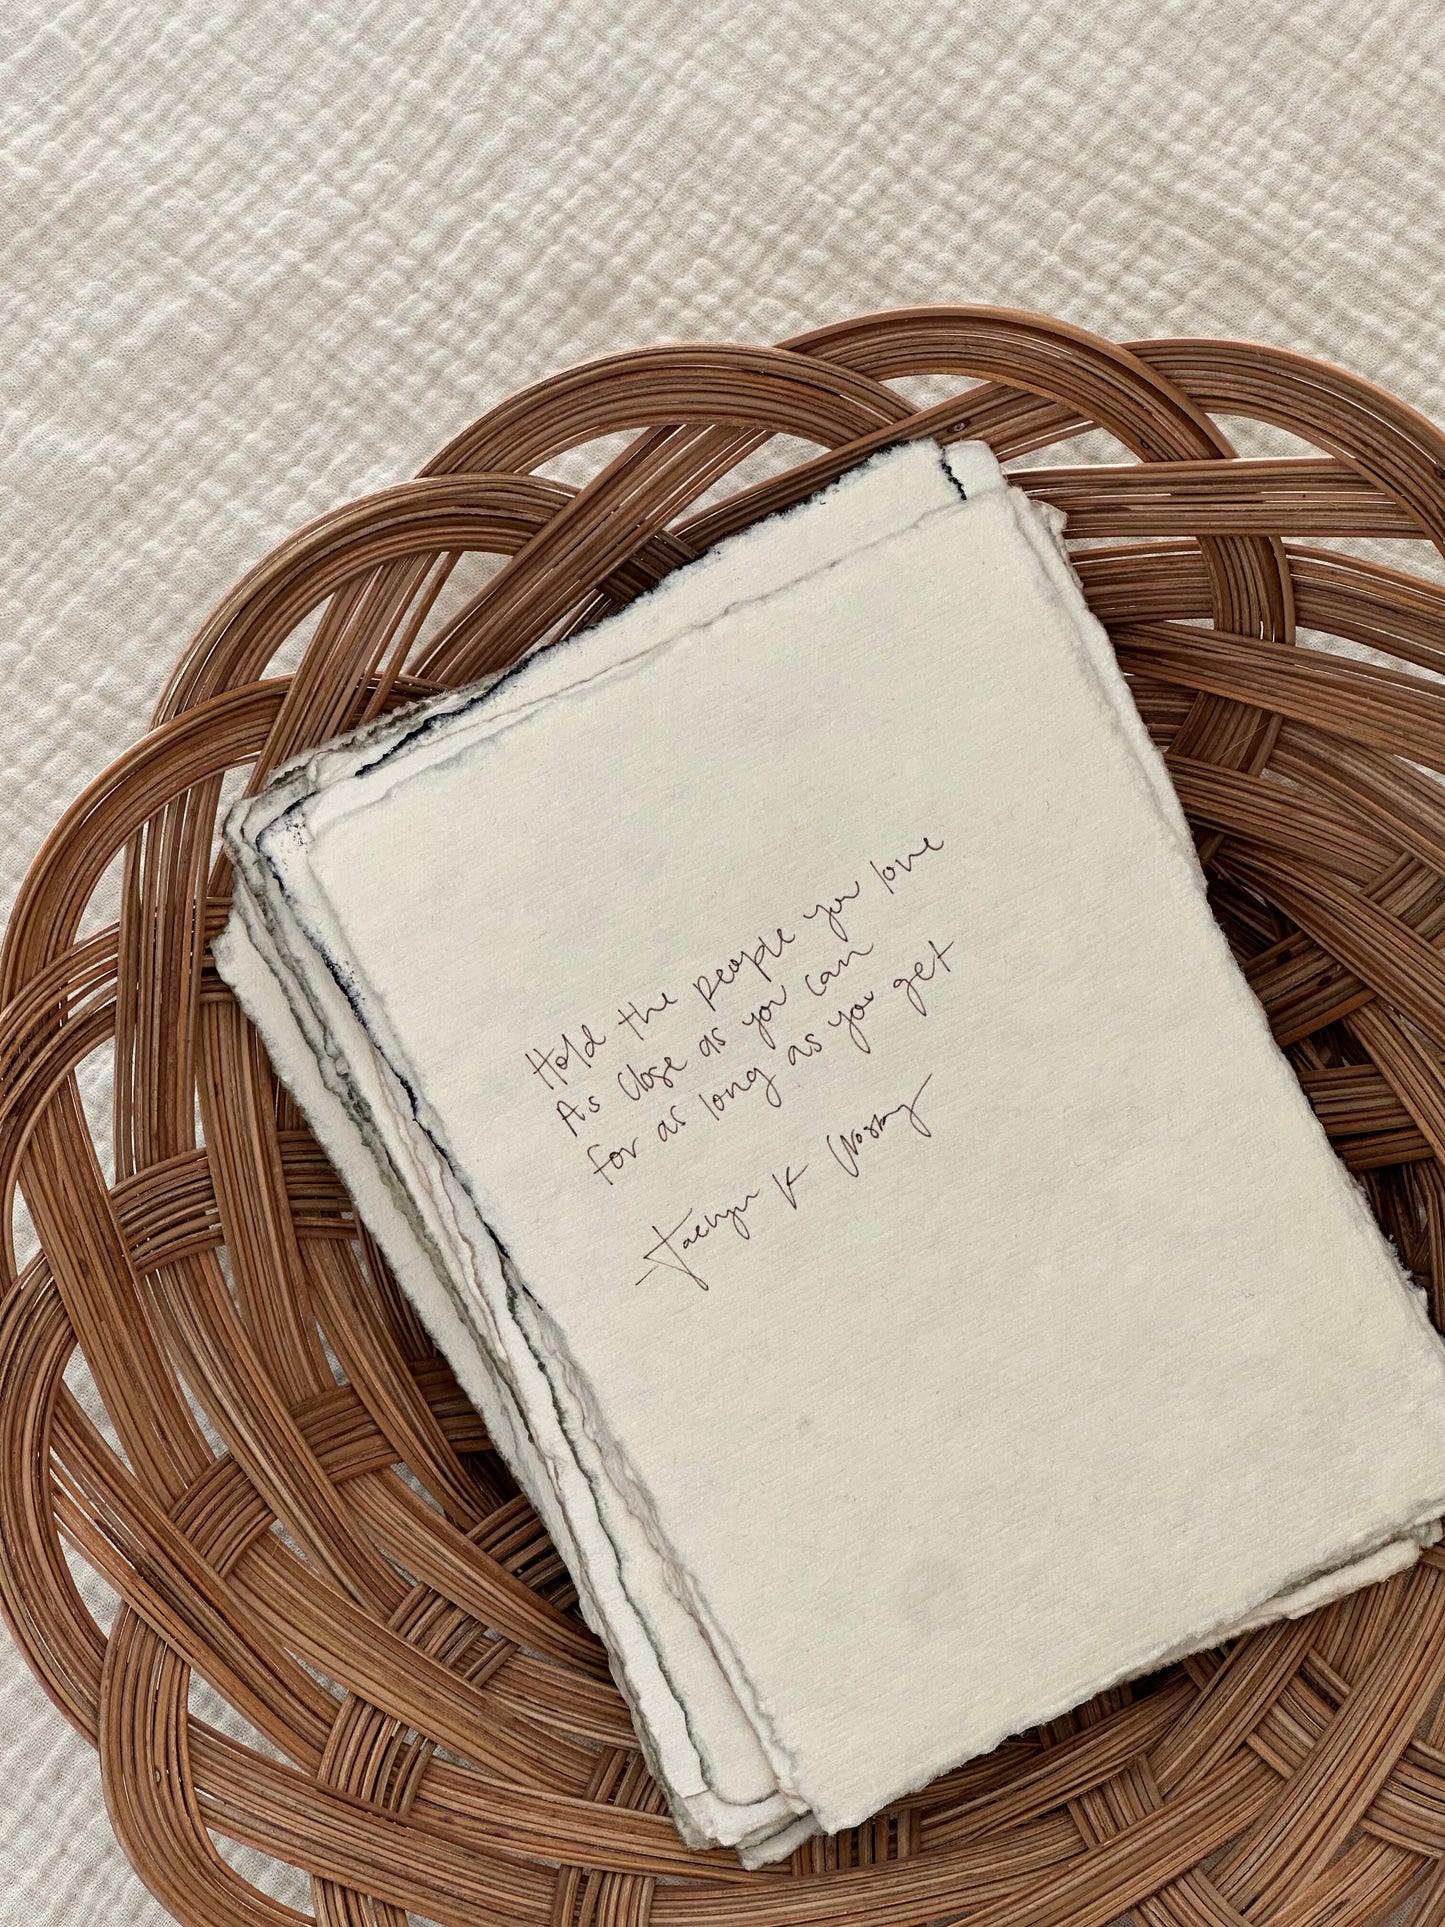 Hold the people you love
As close as you can
for as long as you get
Jaclyn K